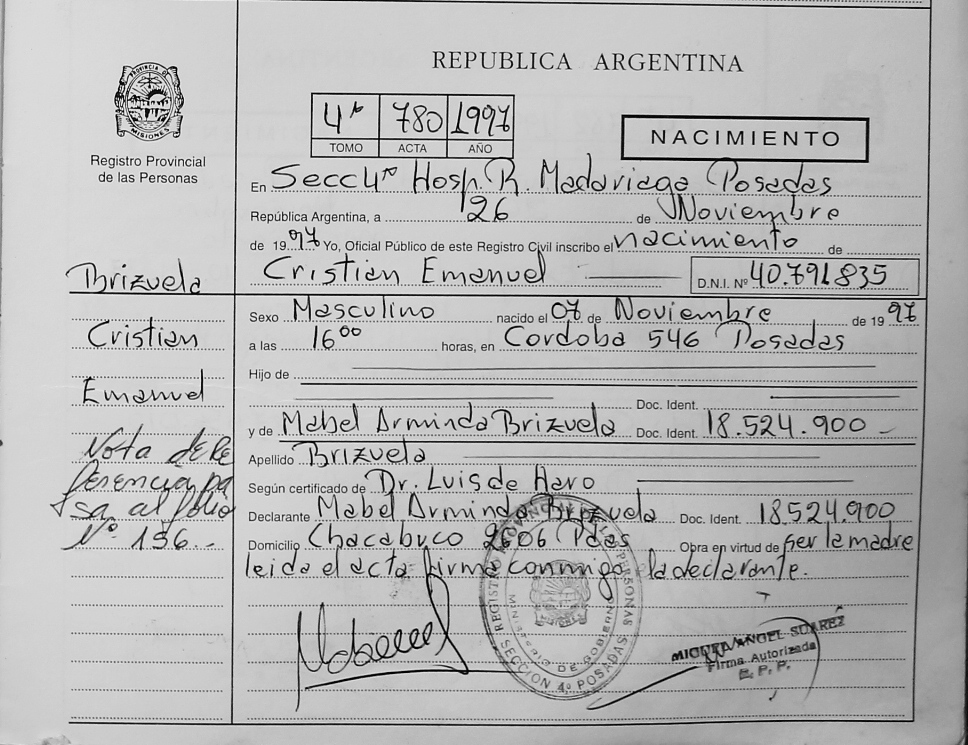 REPUBLICA ARGENTINA
PROVINCIA DE MISIONES
Registro Provincial
de las Personas
4º 780 1997
TOMO ACTA AÑO
NACIMIENTO
En Secc 4º Hosp. R. Madariaga Posadas
República Argentina, a 26 de Noviembre
de 1997 Yo, Oficial Público de este Registro Civil inscribo el nacimiento de
Cristian Emanuel D.N.I. Nº 40.791.835
Brizuela
Cristian
Emanuel
Nota de Re
ferencia pa
sa al folio
Nº 136.-
Sexo Masculino nacido el 07 de Noviembre de 1997
a las 16 00 horas, en Cordoba 546 Posadas
Hijo de
Doc. Ident.
y de Mabel Arminda Brizuela Doc. Ident. 18.524.900 -
Apellido Brizuela
Según certificado de Dr. Luis de Haro
Declarante Mabel Arminda Brizuela Doc. Ident. 18.524.900
Domicilio Chacabuco 2606 Pdas Obra en virtud de ser la madre
leida el acta firma conmigo la declarante.
REGISTRO PROVINCIAL DE LAS PERSONAS
MINISTERIO DE GOBIERNO
SECCION 4º POSADAS
MIGUEL ANGEL SUAREZ
Firma Autorizada
R. P. P.